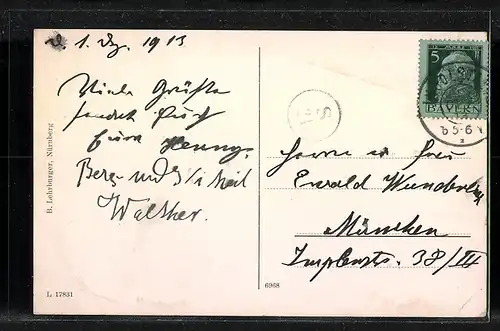 d. 1. Dz. 1913
Viele Grüße
sendet Euch
Eure Henny.
Berg- und Ski Heil
Walther.
B. Lehrburger, Nürnberg
L 17831
6968
5
BAYERN
Herrn u. Frau
Ewald
München
38/III